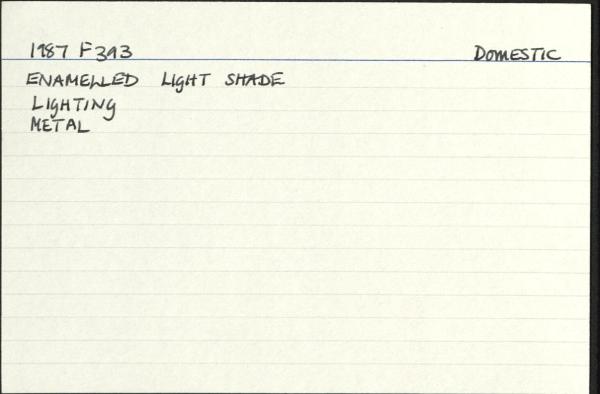 1987 F393 DOMESTIC
ENAMELLED LIGHT SHADE
LIGHTING
METAL